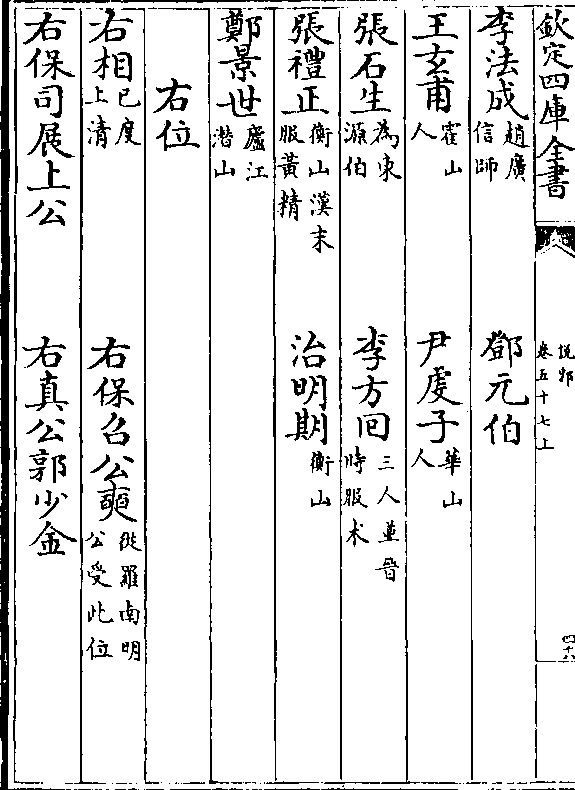 欽定四庫全書
說郛
卷五十七上
四十六
李法成趙廣信師
鄧元伯
王玄甫霍山人
尹虔子華山人
張石生為東源伯
李方回三人並晉時服术
張禮正衡山漢末服黃精
治明期衡山
鄭景世廬江潛山
右位
右相已度上清
右保召公奭從羅南明公受此位
右保司展上公
右真公郭少金